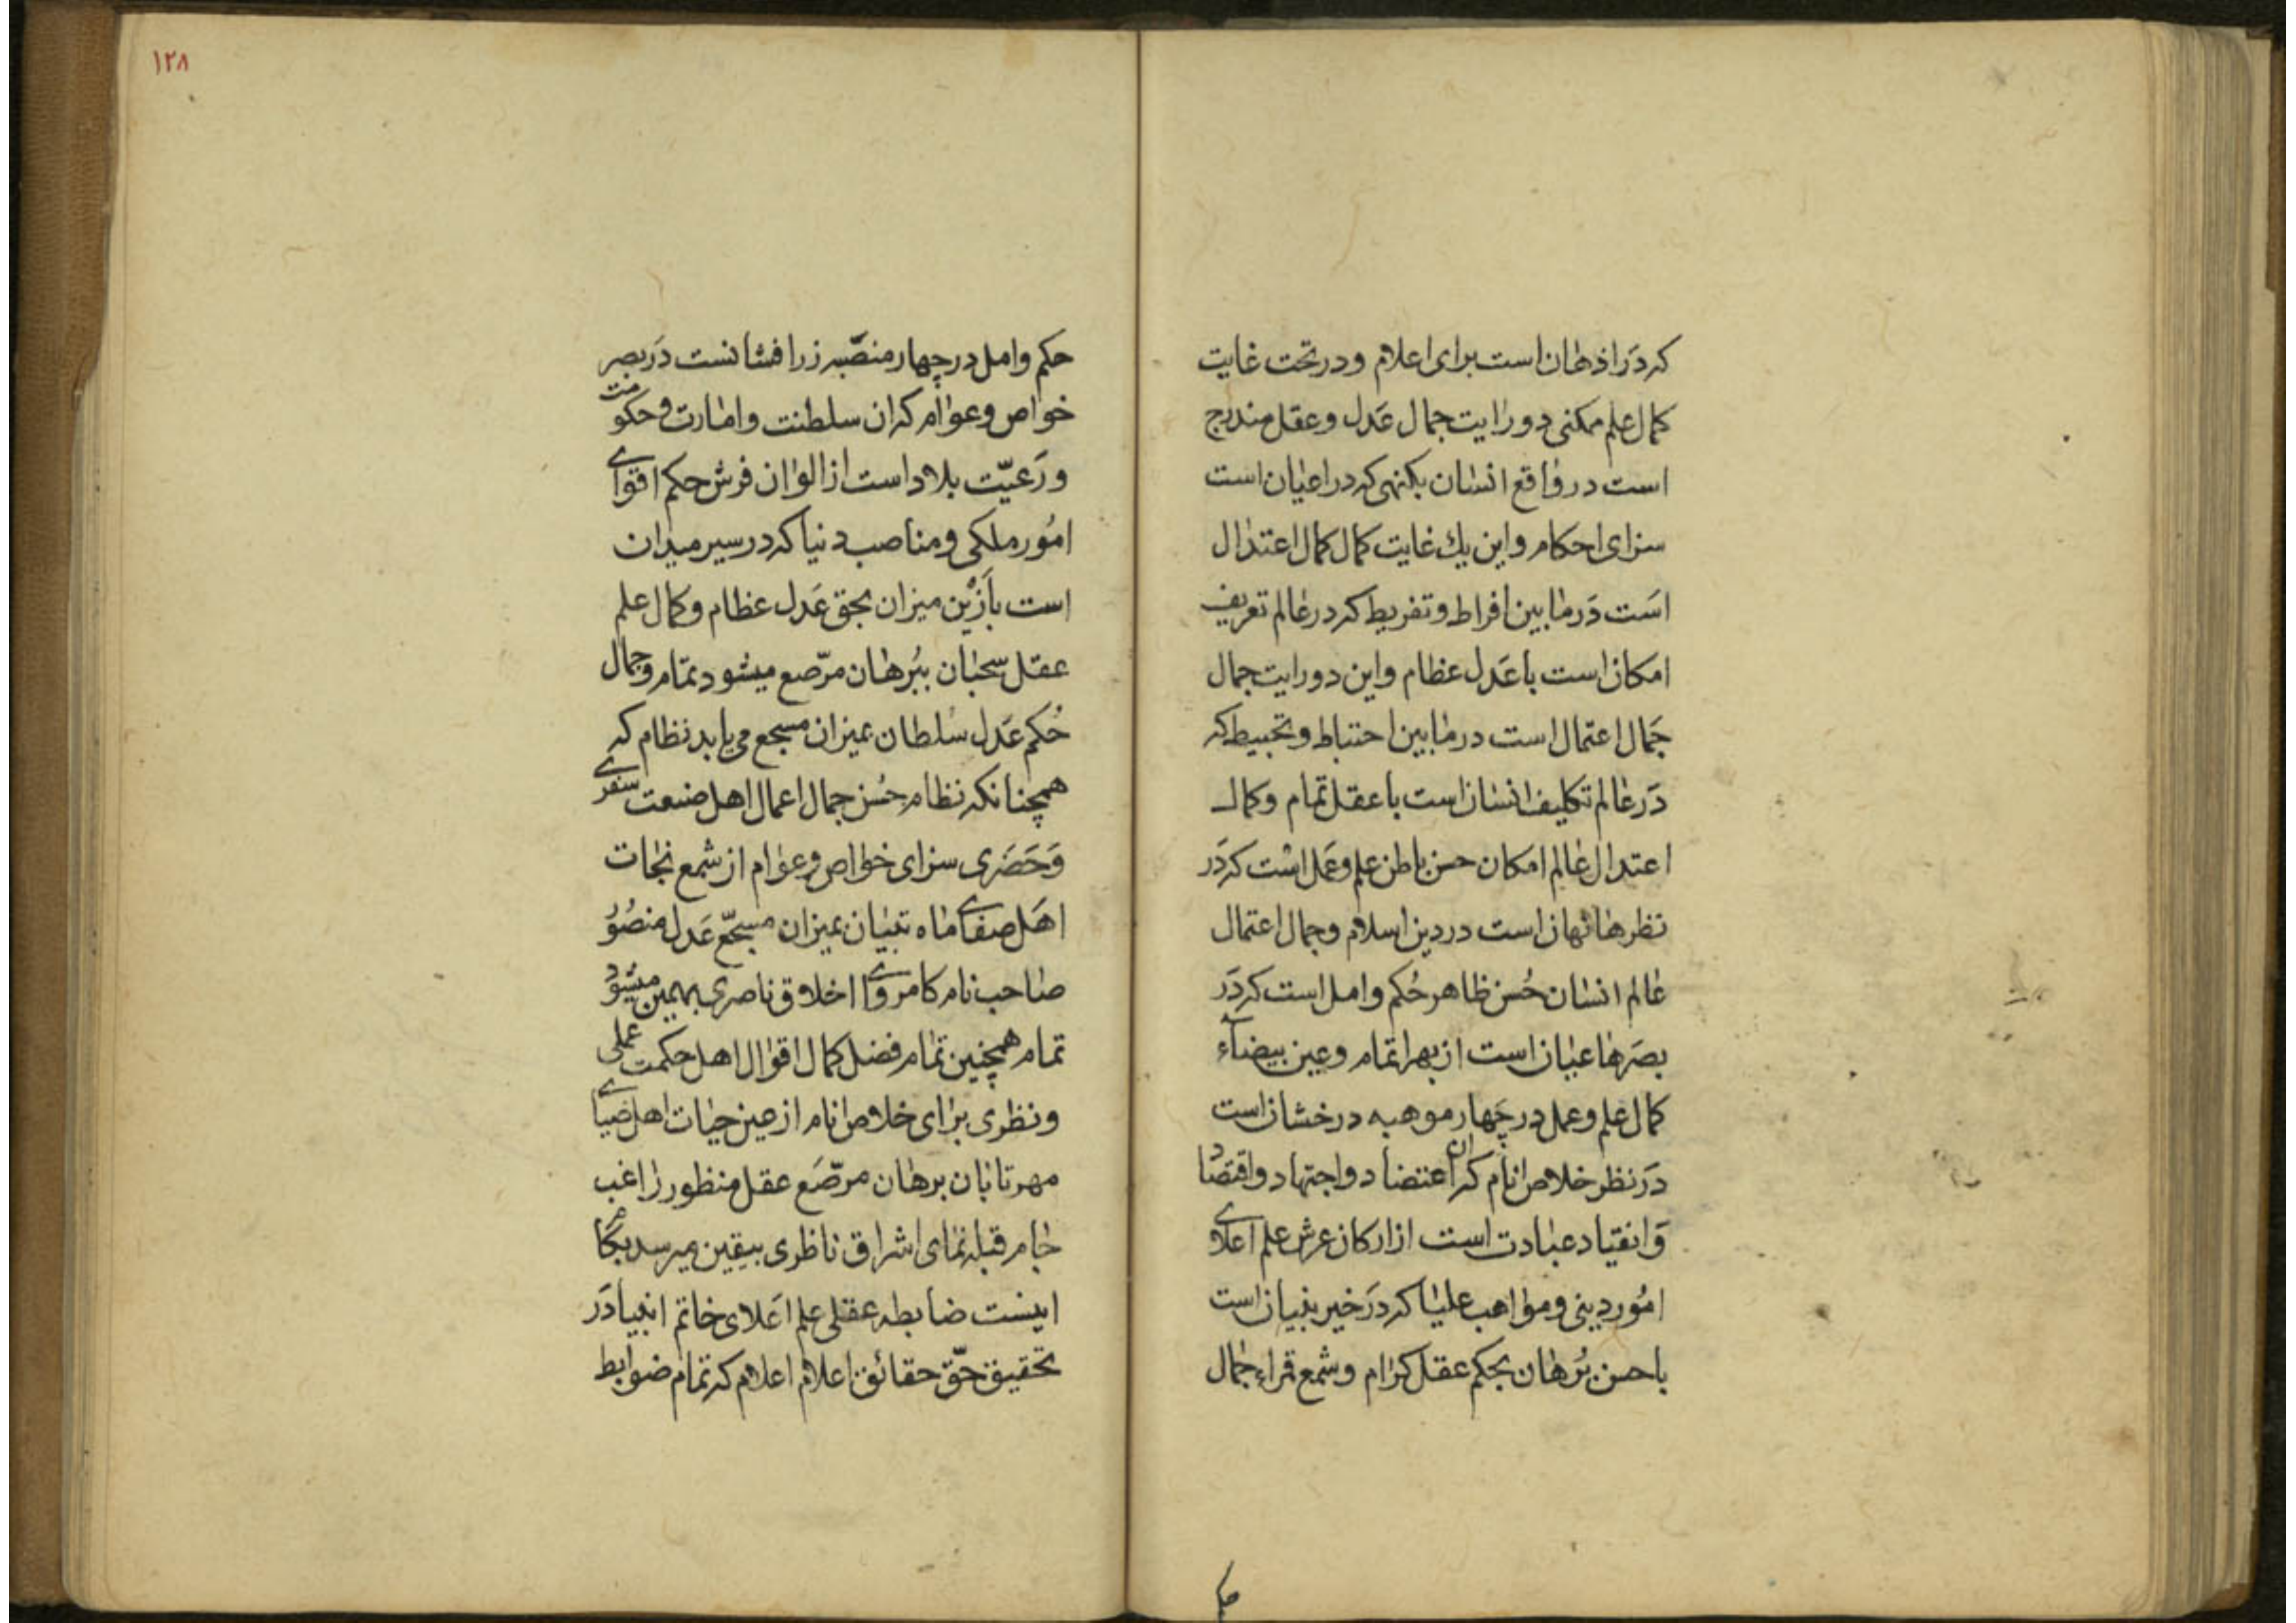 که در اذهان است برای اعلام و در تحت غایت
کمال علم ممکنی دو رایت جمال عدل و عقل مندرج
است در واقع انسان بکنهی که در اعیان است
سزای احکام و این یک غایت کمال کمال اعتدال
است در مابین افراط و تفریط که در عالم تعریف
امکان است با عدل عظام و این دو رایت جمال
جمال اعتمال است در مابین احتباط و تخبیط که
در عالم تکلیف انسان است با عقل تمام و کمال
اعتدال عالم امکان حسن باطن علم و عمل است که در
نظرها نهان است در دین اسلام و جمال اعتمال
عالم انسان حُسن ظاهر حُکم و امل است که در
بصرها عیان است از بهر اتمام و عین بیضآء
کمال علم و عمل در چهار موهبه درخشان است
در نظر خلاص انام که ان اعتضاد و اجتهاد و اقتصاد
و انقیاد عبادت است از ارکان عرش علم اعلای
امُور دینی و مواهب علیا که در خیر بنیان است
با حسن بُرهان بحکم عقل کرام و شمع قراء جمال
حکم
۱۲۸
حکم و امل در چهار منصّبه زرافشانست در بصر
خواص و عوام که ان سلطنت و امارت و حکومت
و رَعیّت بلاد است از الوان فرش حکم اقوای
امُور ملکی و مناصب دنیا که در سیر میدان
است بآزین میزان بحق عَدل عظام و کمال علم
عقل سحبان ببُرهان مرّصع میشود تمّام و جمال
حُکم عَدل سُلطان بمیزان مسجع می یابد نظام که
همچنانکه نظام حُسن جمال اعمال اهل صنعت سفری
وَحَضَری سزای خواص و عوام از شمع نجات
اهَل صفای ماه تبیان بمیزان مسجّع عَدل منصُوُ
صاحب نام کامروای اخلاق ناصری بهیمین میشود
تمام همچنین تمام فضل کمال اقوال اهل حکمت عملی
و نظری برای خلاص انام از عین حیات اهل ضیای
مهر تابان برهان مرصّع عقل منظور راغب
جام قبله نمای اشراق ناظری بیقین میرسد بکام
اینست ضابطه عقلی علم اَعلای خاتم انبیا دَر
تحقیق حقّ حقائق اعلام اعلام که تمام ضوابط